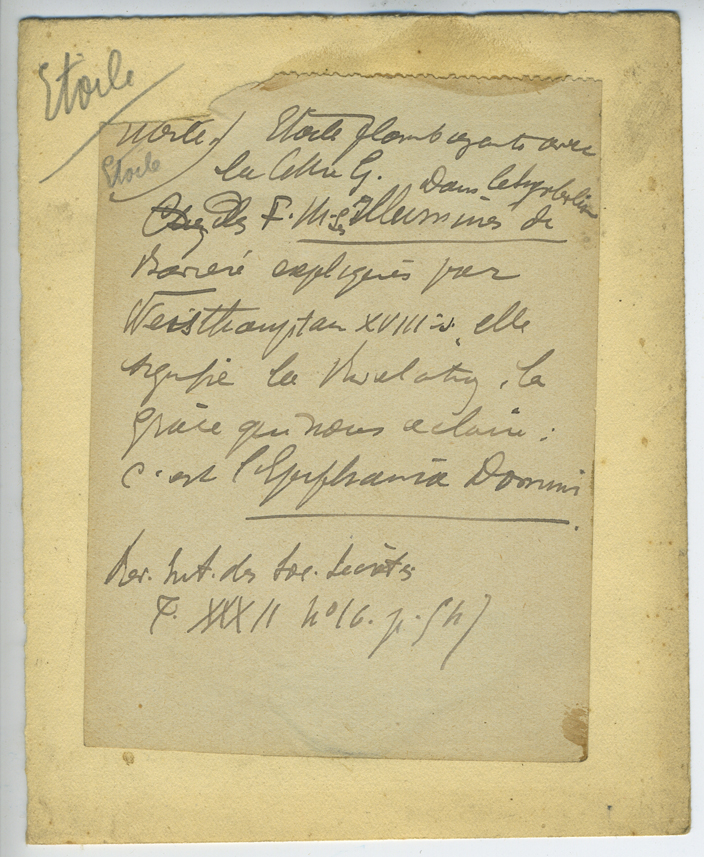 Etoile
Etoile
Etoile flamboyante avec
la lettre G. Dans le symbolism
Chez des F. M. Les Illuminés de
Bavière expliqués par
XVIII s. elle
signifie la , la
Grâce qui nous éclaire :
c'est l'Epiphania Domini.
Rev. Int. des Soc. Secrètes
T. XXII No 16. p.